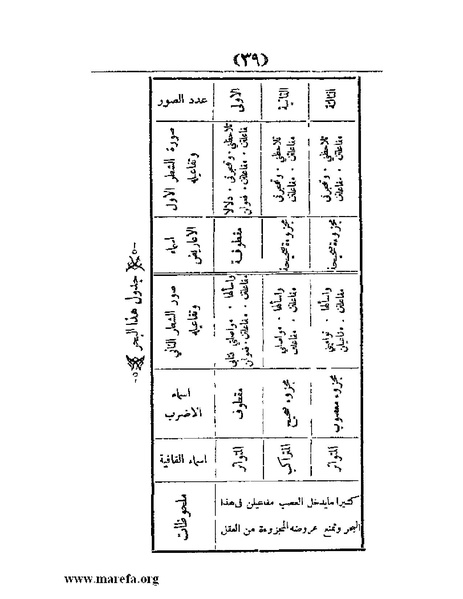 (٣٩)
جدول هذا البحر
عدد الصور
الاولى
الثانية
الثالثة
صورة الشطر الاول
وتفاعيله
تلاحظنى . وتهجرنى . دلالا
مفاعلتن . مفاعلتن . فعولن
تلاحظنى . وتهجرنى
مفاعلتن . مفاعلتن
تلاحظنى . وتهجرنى
مفاعلتن . مفاعلتن
اسماء
الاعاريض
مقطوفة
مجزوءة صحيحة
مجزوءة صحيحة
صور الشطر الثاني
وتفاعيله
واسألها . مواصلتى
مفاعلتن . مفاعلتن . فعولن
واسألها . مواصلتى
مفاعلتن . مفاعلتن
واسألها
مفاعلتن . مفاعيلن
اسماء
الاضرب
مقطوف
مجزوء صحيح
مجزوء معصوب
اسماء القافية
المتواتر
المتراكب
المتواتر
ملحوظات
كثيرا مايدخل العصب مفاعيلن فى هذا
البحر وتمنع عروضه المجزوءة من العقل
www.marefa.org